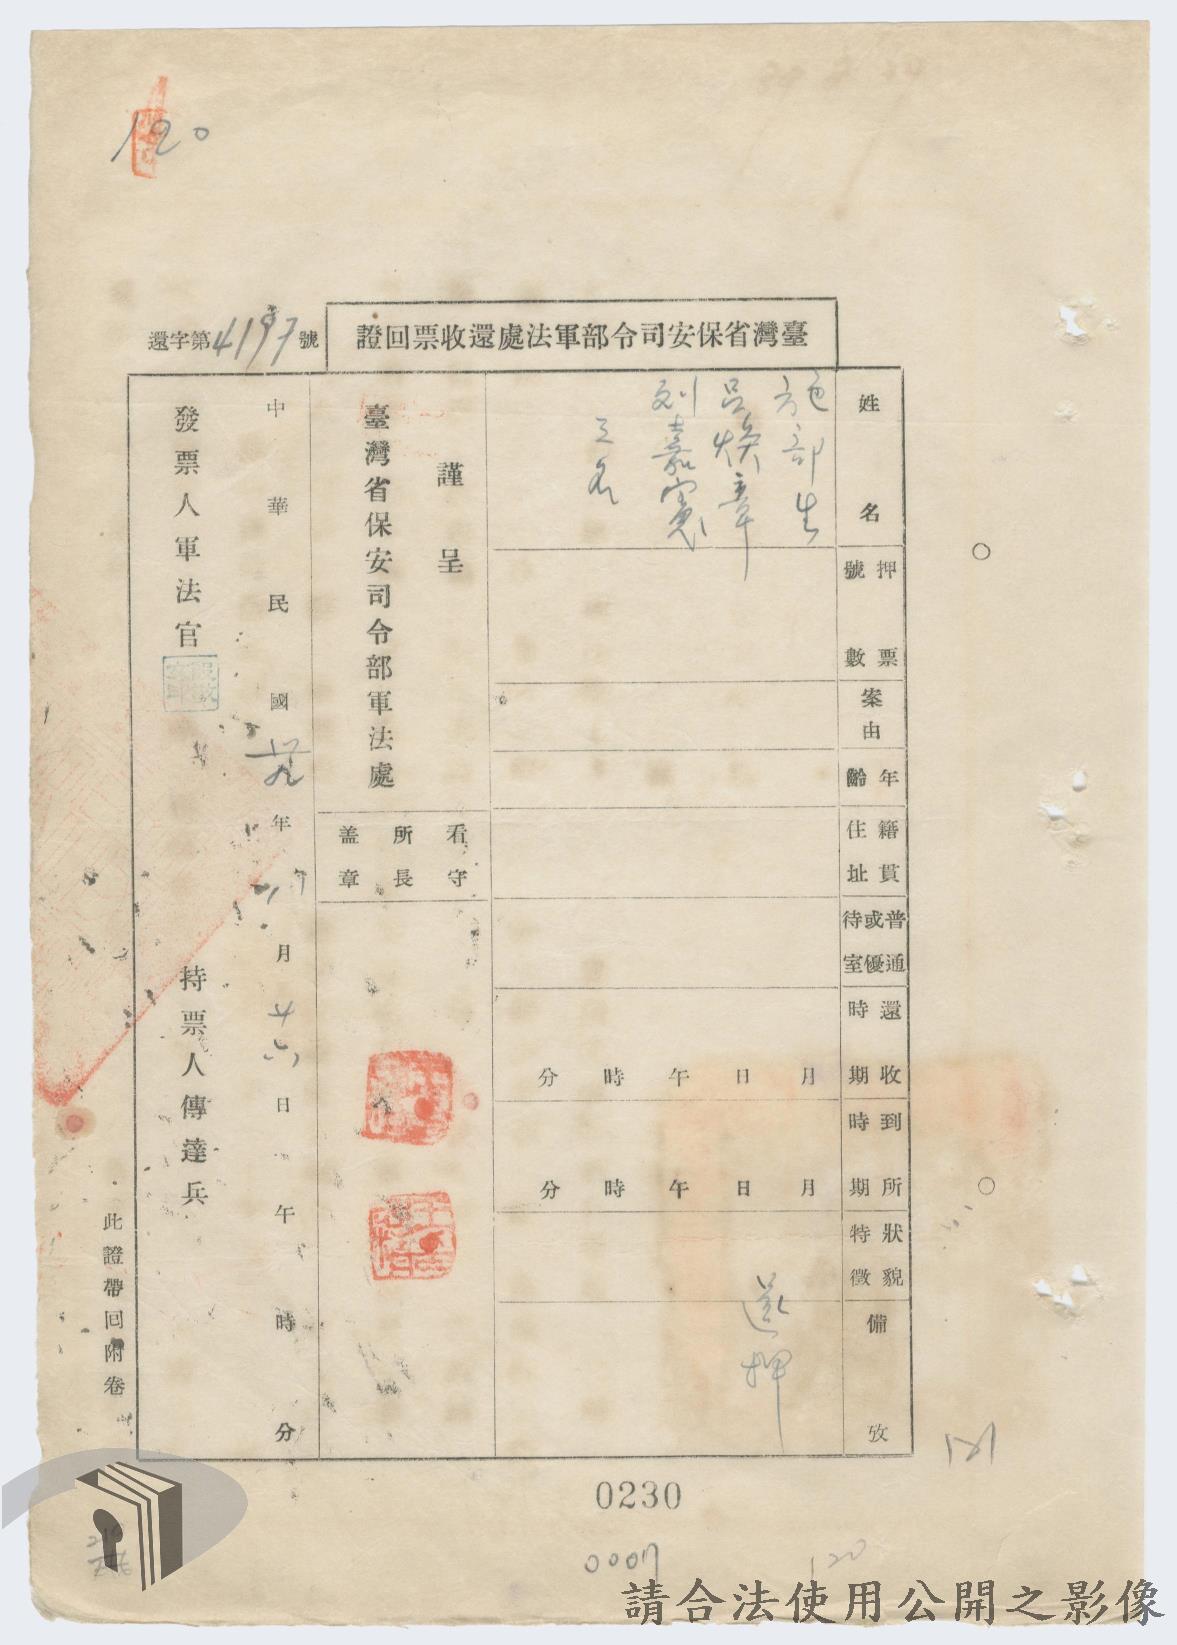 120
臺灣省保安司令部軍法處還收票回證
還字第4197號
姓名
施部生
呂煥章
劉嘉憲
三名
押票號數
案由
年齡
籍貫住址
普通或優待室
還收時期
月 日 午 時 分
到所時期
月 日 午 時 分
狀貌特徵
備攷
還押
謹呈
臺灣省保安司令部軍法處
看守所長盖章
中華民國卅九年 月廿六日 午 時 分
發票人軍法官
持票人傳達兵
此證帶回附卷
121
0230
120
請合法使用公開之影像